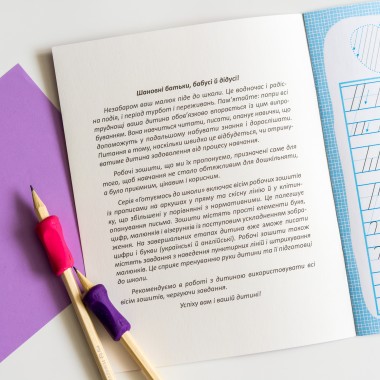 Шановні батьки, бабусі й дідусі!
Незабаром ваш малюк піде до школи. Це водночас і радіс-
на подія, і період турбот і переживань. Пам'ятайте: попри всі
труднощі ваша дитина обов'язково впорається із цим випро-
буванням. Вона навчиться читати, писати, опанує навички, що
допоможуть у подальшому набувати знання й дорослішати.
Питання в тому, наскільки швидко це відбудеться, чи отриму-
ватиме дитина задоволення від процесу навчання.
Робочі зошити, що ми їх пропонуємо, призначені саме для
того, щоб навчання не стало обтяжливим для дошкільняти,
а було приємним, цікавим і корисним.
Серія «Готуємось до школи» включає вісім робочих зошитів
із прописами на аркушах у пряму та скісну лінію й у клітин-
ку, що збільшені у порівнянні з нормативними. Це полегшує
опанування письма. Зошити містять прості елементи букв,
цифр, малюнків і візерунків із поступовим ускладненням зобра-
ження. На завершальних етапах дитина вже зможе писати
цифри і букви (українські й англійські). Робочі зошити також
містять завдання з наведення пунктирних ліній і штрихування
малюнків. Це сприяє тренуванню руки дитини та її підготовці
до школи.
Рекомендуємо в роботі з дитиною використовувати всі
вісім зошитів, чергуючи завдання.
Успіху вам і вашій дитині!